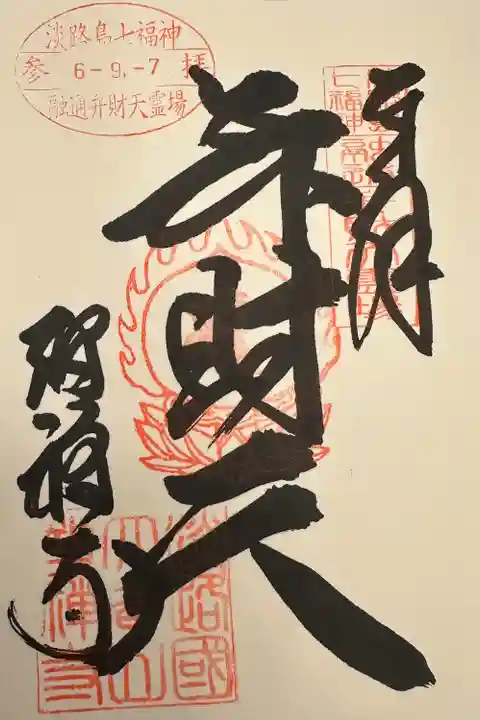 淡路島七福神
参 6-9.-7 拝
融通弁財天霊場
奉拝
弁財天
智禅寺
淡路國
智禅寺